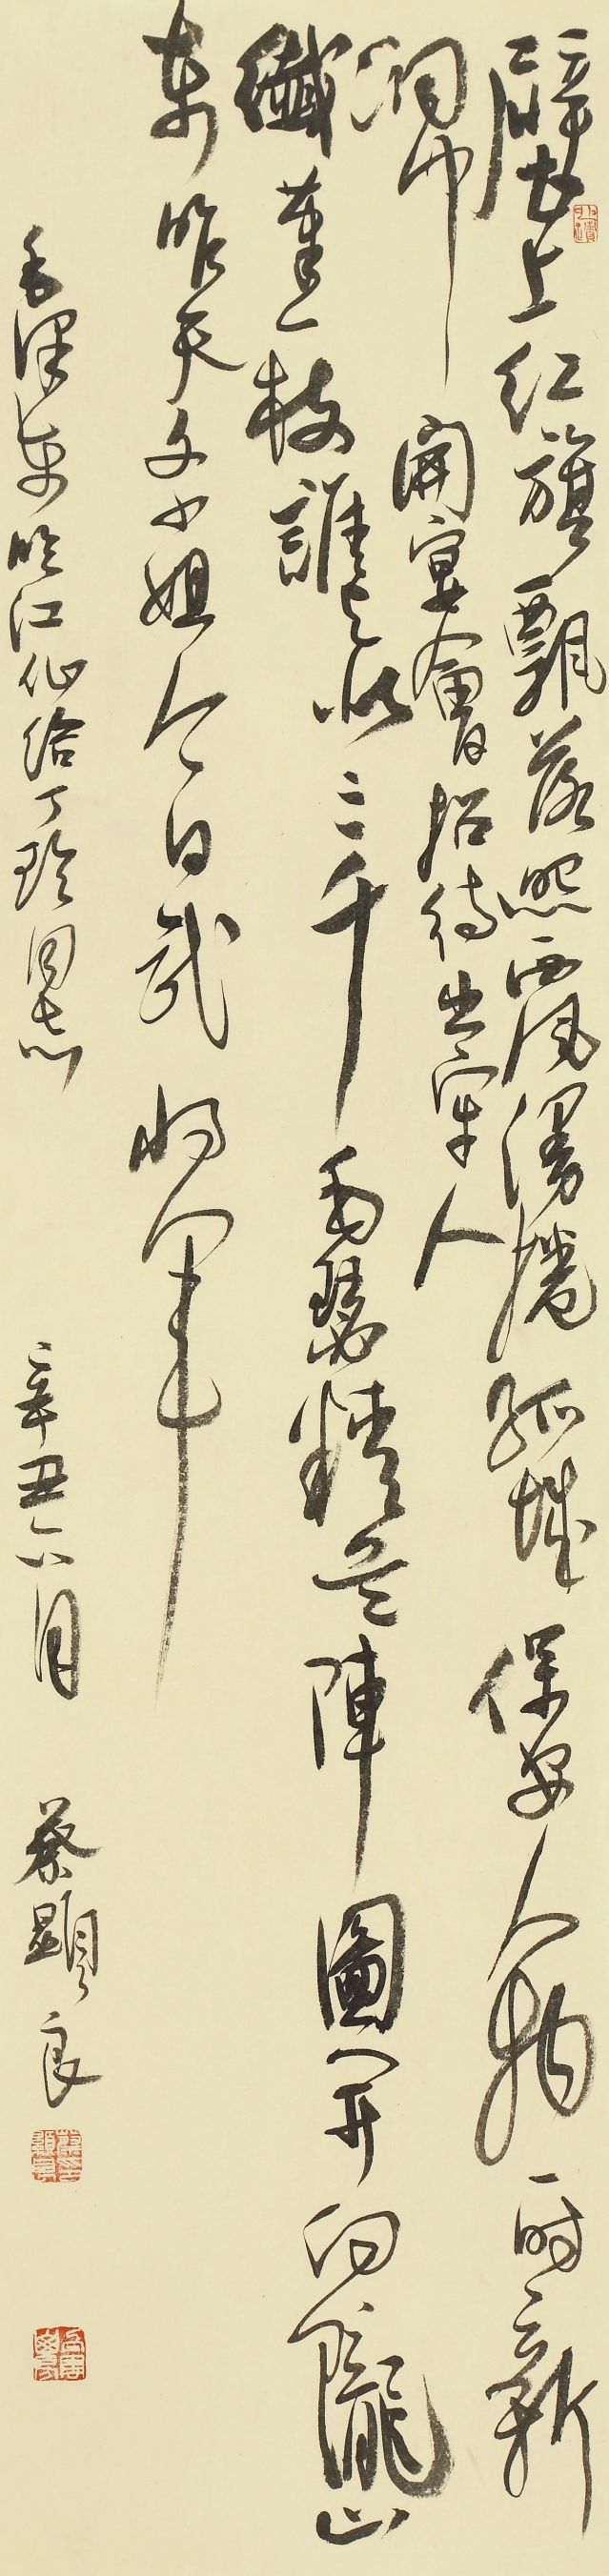 壁上红旗飄落照西風漫捲孤城保安人物一时新
洞中開宴會招待出牢人
纖筆一枝誰与似三千毛瑟精兵陣圖开向隴山
东昨天文小姐今日武将军
毛泽东临江仙给丁玲同志 辛丑六月 蔡顯良